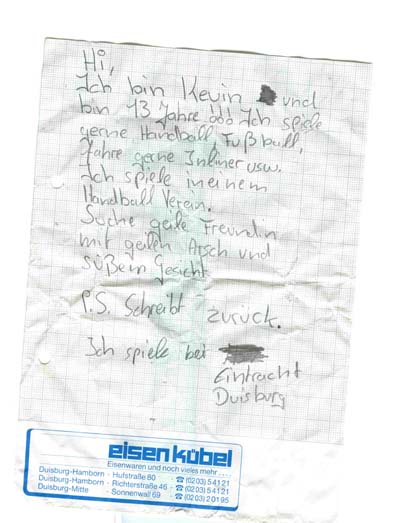 Hi,
Ich bin Kevin und
bin 13 Jahre Ich spiele
gerne Handball, Fußball,
fahre gerne Inliner usw.
Ich spiele in einem
Handball Verein.
Suche geile Freundin
mit geilen Arsch und
süßem Gesicht
P.S. Schreibt zurück.
Ich spiele bei
Eintracht
Duisburg
eisen kübel
Eisenwaren und noch vieles mehr ....
Duisburg-Hamborn · Hufstraße 80 · ☎ (02 03) 5 41 21
Duisburg-Hamborn · Richterstraße 46 · ☎ (02 03) 5 41 21
Duisburg-Mitte · Sonnenwall 69 · ☎ (02 03) 2 01 95